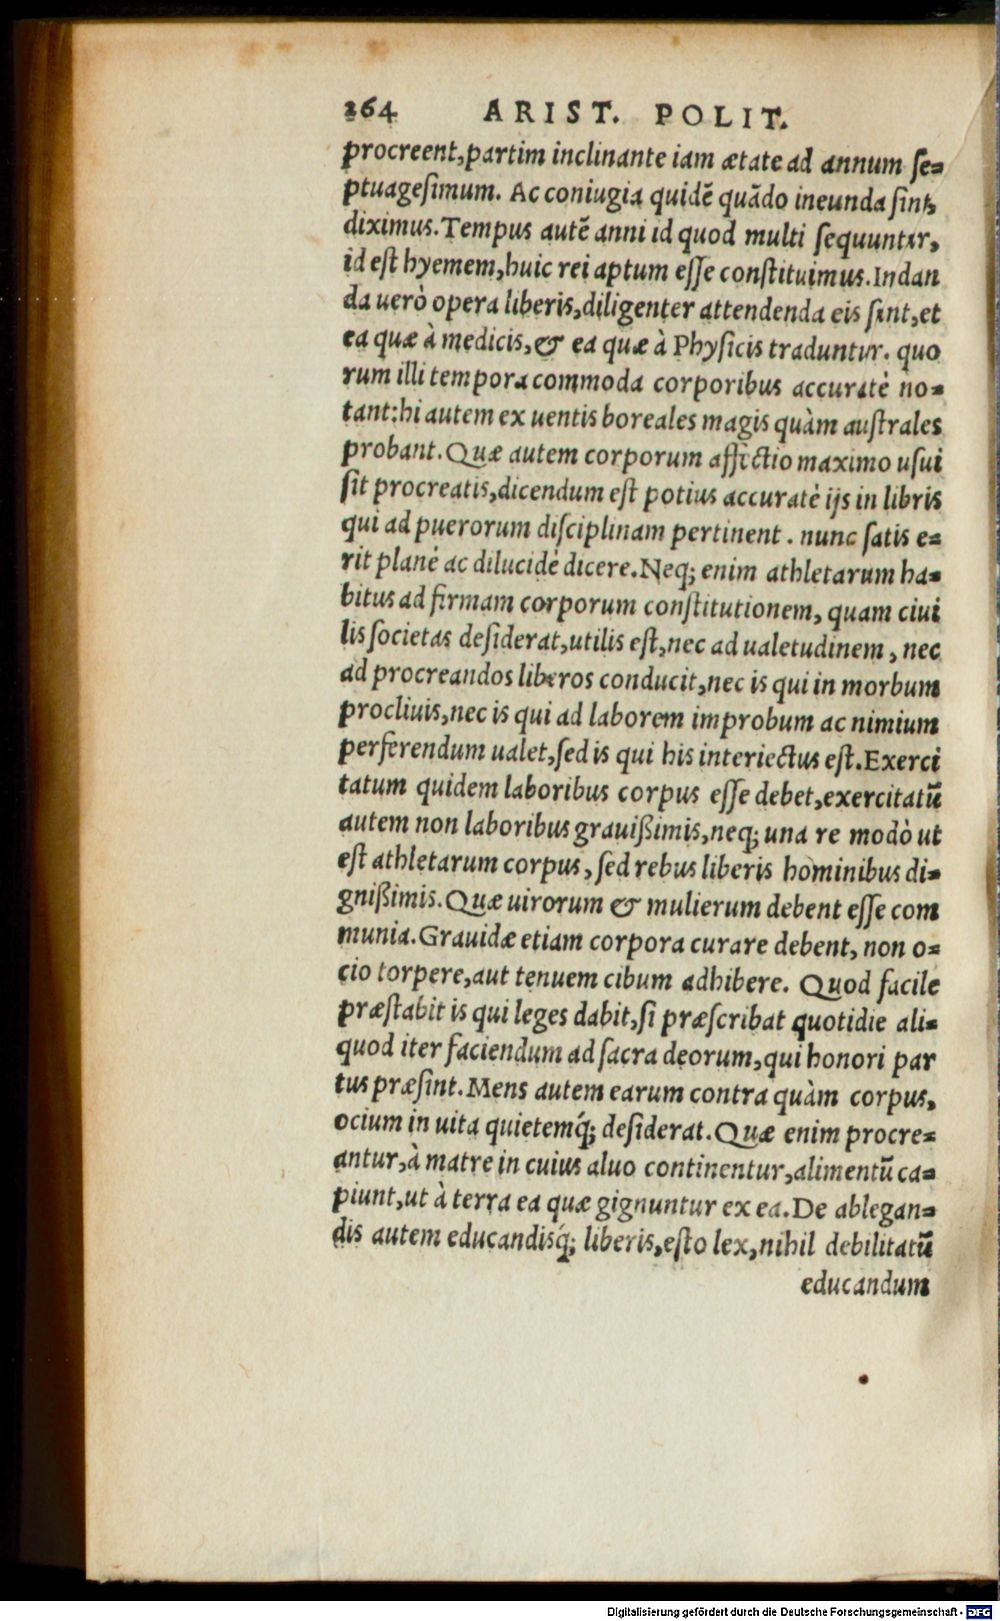 264 ARIST. POLIT.
procreent,partim inclinante iam ætate ad annum ſe-
ptuageſimum. Ac coniugia quidē quādo ineunda ſint,
diximus.Tempus autē anni id quod multi ſequuntur,
id eſt hyemem,huic rei aptum eſſe conſtituimus.In dan
da uerò opera liberis,diligenter attendenda eis ſint,et
ea quæ à medicis,& ea quæ à Phyſicis traduntur. quo
rum illi tempora commoda corporibus accuratè no-
tant:hi autem ex uentis boreales magis quàm auſtrales
probant.Quæ autem corporum affectio maximo uſui
ſit procreatis,dicendum eſt potius accuratè ijs in libris
qui ad puerorum diſciplinam pertinent. nunc ſatis e-
rit planè ac dilucidè dicere.Neq; enim athletarum ha-
bitus ad firmam corporum conſtitutionem, quam ciui
lis ſocietas deſiderat,utilis eſt,nec ad ualetudinem, nec
ad procreandos liberos conducit,nec is qui in morbum
procliuis,nec is qui ad laborem improbum ac nimium
perferendum ualet,ſed is qui his interiectus eſt.Exerci
tatum quidem laboribus corpus eſſe debet,exercitatū
autem non laboribus grauißimis,neq; una re modò ut
eſt athletarum corpus, ſed rebus liberis hominibus di-
gnißimis.Quæ uirorum & mulierum debent eſſe com
munia.Grauidæ etiam corpora curare debent, non o-
cio torpere,aut tenuem cibum adhibere. Quod facile
præſtabit is qui leges dabit,ſi præſcribat quotidie ali-
quod iter faciendum ad ſacra deorum,qui honori par
tus præſint.Mens autem earum contra quàm corpus,
ocium in uita quietemq́; deſiderat.Quæ enim procre-
antur,à matre in cuius aluo continentur,alimentū ca-
piunt,ut à terra ea quæ gignuntur ex ea.De ablegan-
dis autem educandisq́; liberis,eſto lex,nihil debilitatū
educandum
Digitalisierung gefördert durch die Deutsche Forschungsgemeinschaft - DFG